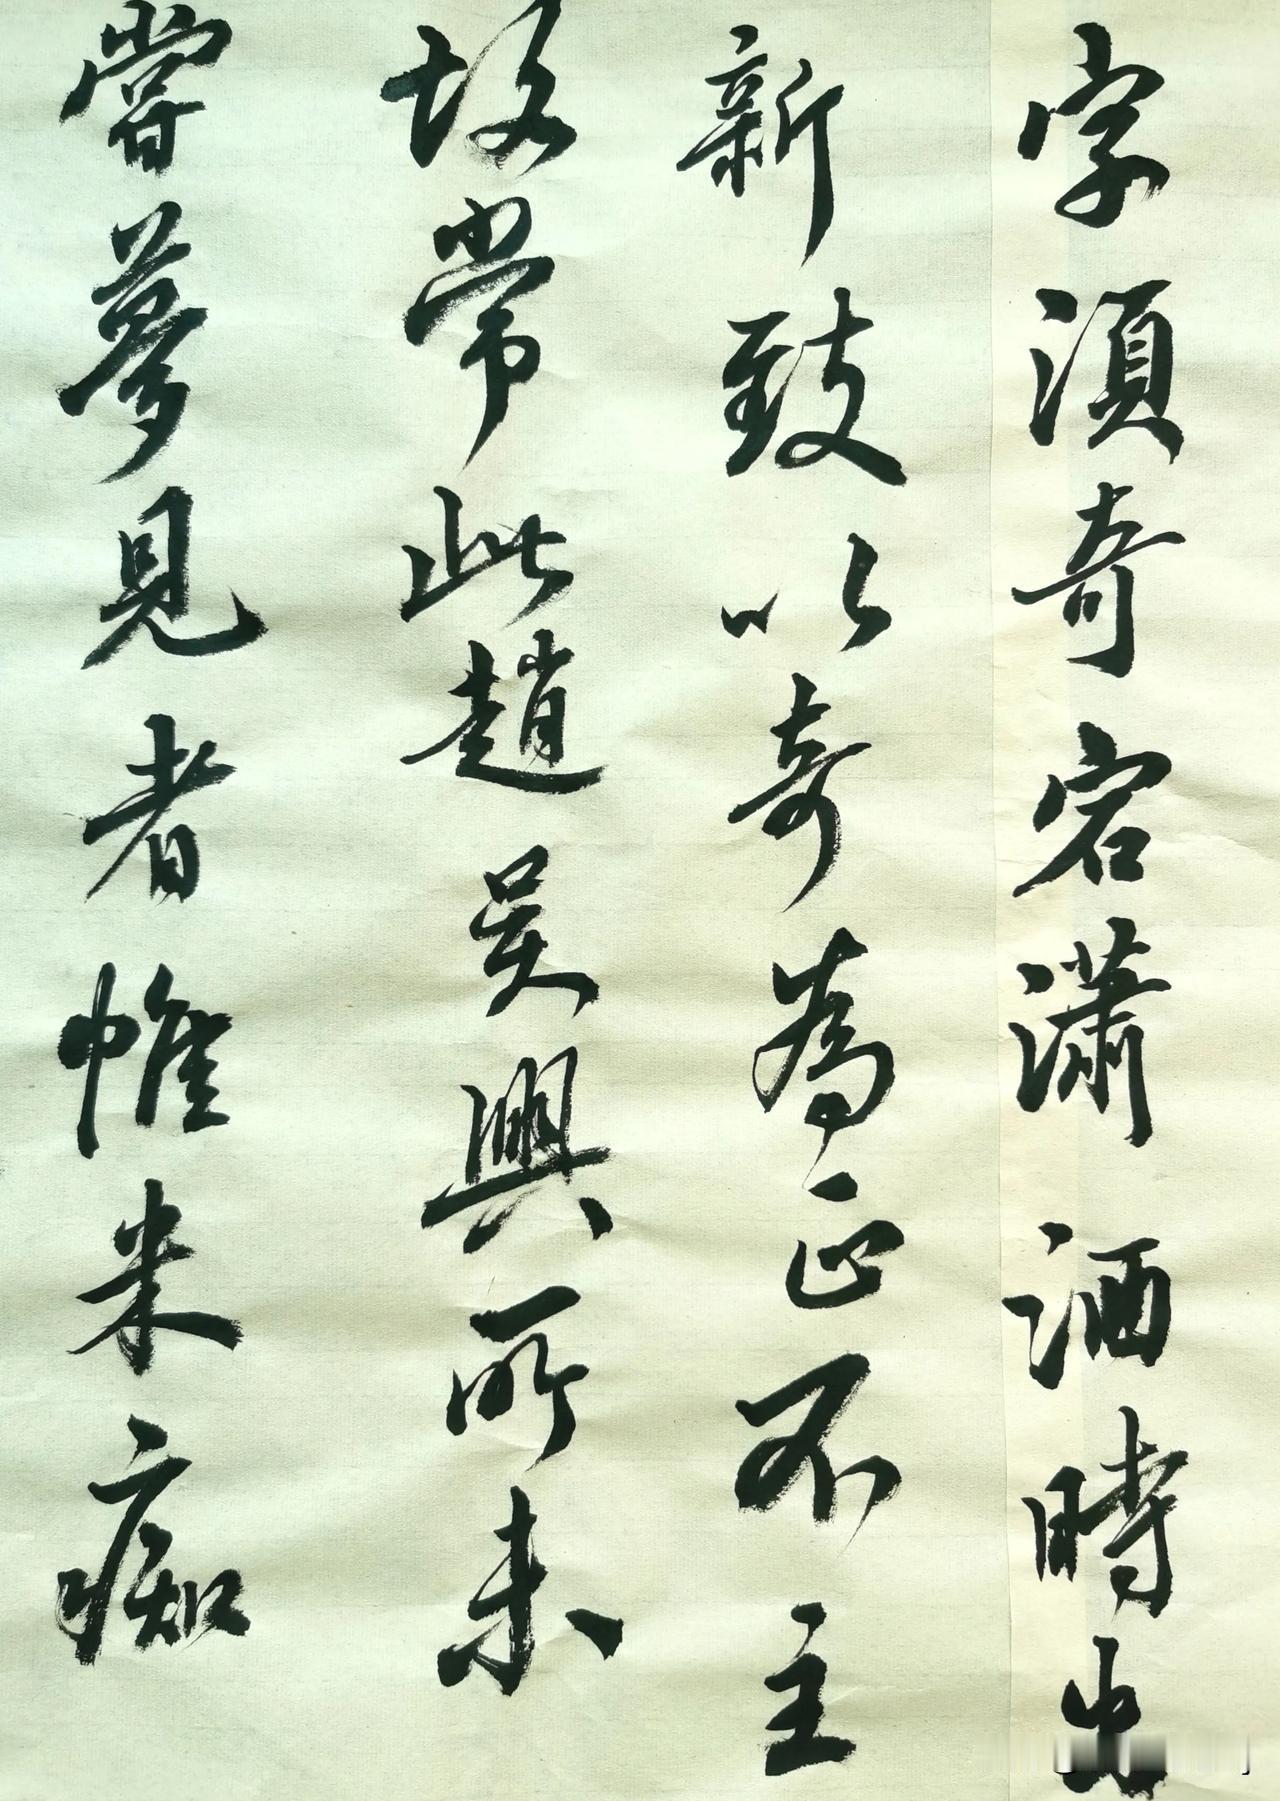 字須奇宕瀟洒時出
新致以奇為正不主
故常此趙吳興所未
嘗夢見者惟米癡